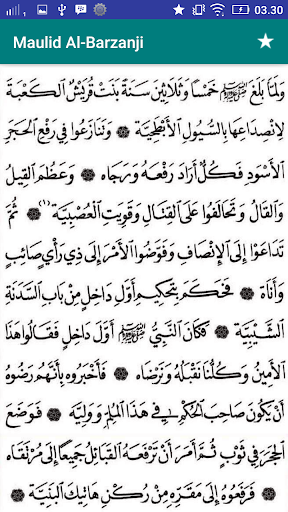 03.30
Maulid Al-Barzanji
وَلَمَّا بَلَغَ ﷺ خَمْسًا وَثَلَاثِيْنَ سَنَةً بَنَتْ قُرَيْشٌ الْكَعْبَةَ
لِانْصِدَاعِهَا بِالسُّيُوْلِ الْأَبْطَحِيَّةِ ۞ وَتَنَازَعُوْا فِيْ رَفْعِ الْحَجَرِ
الْأَسْوَدِ فَكُلٌّ أَرَادَ رَفْعَهُ وَرَجَاهُ ۞ وَعَظُمَ الْقِيْلُ
وَالْقَالُ وَتَحَالَفُوْا عَلَى الْقِتَالِ وَقَوِيَتِ الْعَصَبِيَّةُ (١) ۞ ثُمَّ
تَدَاعَوْا إِلَى الْإِنْصَافِ وَفَوَّضُوا الْأَمْرَ إِلَى ذِيْ رَأْيٍ صَائِبٍ
وَأَنَاةٍ ۞ فَحَكَمَ بِتَحْكِيْمِ أَوَّلِ دَاخِلٍ مِنْ بَابِ السَّدَنَةِ
الشَّيْبِيَّةِ ۞ فَكَانَ النَّبِيُّ ﷺ أَوَّلَ دَاخِلٍ فَقَالُوْا هٰذَا
الْأَمِيْنُ وَكُلُّنَا نَقْبَلُهُ وَنَرْضَاهُ ۞ فَأَخْبَرُوْهُ بِأَنَّهُمْ رَضُوْهُ
أَنْ يَكُوْنَ صَاحِبَ الْحُكْمِ فِيْ هٰذَا الْمُلِمِّ وَوَلِيَّهُ ۞ فَوَضَعَ
الْحَجَرَ فِيْ ثَوْبٍ ثُمَّ أَمَرَ أَنْ تَرْفَعَهُ الْقَبَائِلُ جَمِيْعًا إِلَى مُرْتَقَاهُ
۞ فَرَفَعُوْهُ إِلَى مَقَرِّهِ مِنْ رُكْنِ هَاتِيْكَ الْبَنِيَّةِ ۞